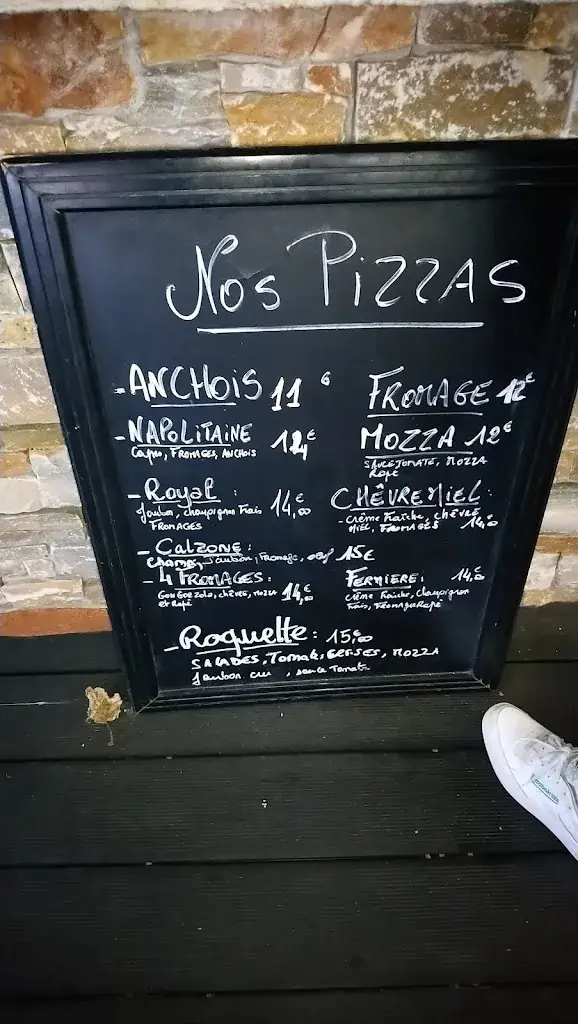 Nos PIZZAS
- ANCHOIS 11 €
FROMAGE 12€
- NAPOLITAINE 12€
CAPRO, FROMAGES, ANCHOIS
MOZZA 12€
SAUCE TOMATE, MOZZA
RAPÉ
- Royal : 14,00
Jambon, champignon Frais
FROMAGES
CHÊVRE MIEL :
- CRÈME FRAÎCHE, CHÈVRE
MIEL, FROMAGES 14,€
- CALZONE :
CHAMP, Jambon, Fromage, oeuf 15€
- 4 FROMAGES :
GORGORZOLA, CHÈVRE, MOZZA 14,€
et Rapé
FERMIERE : 14,€
Crème Fraîche, Champignon
Frais, FROMAGE RAPÉ
- Roquette : 15,€
SALADES, Tomate, CERISES, MOZZA
Jambon cru , sauce Tomate